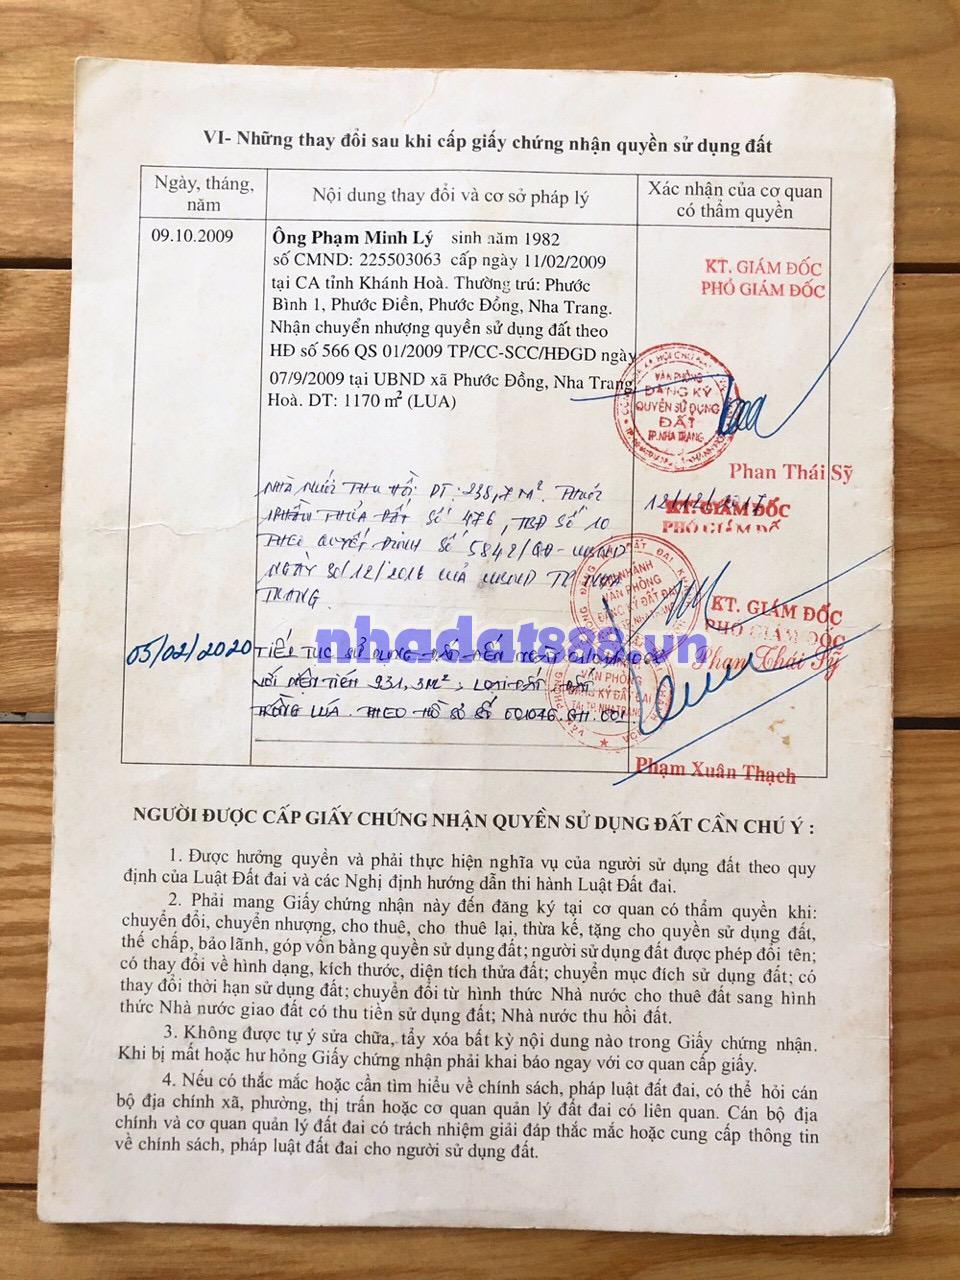 VI- Những thay đổi sau khi cấp giấy chứng nhận quyền sử dụng đất
Ngày, tháng, năm
Nội dung thay đổi và cơ sở pháp lý
Xác nhận của cơ quan có thẩm quyền
09.10.2009
Ông Phạm Minh Lý sinh năm 1982
số CMND: 225503063 cấp ngày 11/02/2009
tại CA tỉnh Khánh Hoà. Thường trú: Phước
Bình 1, Phước Điền, Phước Đồng, Nha Trang.
Nhận chuyển nhượng quyền sử dụng đất theo
HĐ số 566 QS 01/2009 TP/CC-SCC/HĐGD ngày
07/9/2009 tại UBND xã Phước Đồng, Nha Trang
Hoà. DT: 1170 m² (LUA)
KT. GIÁM ĐỐC
PHÓ GIÁM ĐỐC
VĂN PHÒNG
ĐĂNG KÝ
QUYỀN SỬ DỤNG
ĐẤT
TP.NHA TRANG
Phan Thái Sỹ
NHÀ NƯỚC THU HỒI DT: 238,7 M². THUỘC
PHẦN THỬA ĐẤT SỐ 476, TBĐ SỐ 10
THEO QUYẾT ĐỊNH SỐ 5842/QĐ-UBND
NGÀY 30/12/2016 CỦA UBND TP NHA
TRANG.
12/12/2017
KT. GIÁM ĐỐC
PHÓ GIÁM ĐỐC
CHI NHÁNH
VĂN PHÒNG
ĐĂNG KÝ ĐẤT ĐAI
TẠI TP. NHA TRANG
Phan Thái Sỹ
05/02/2020
TIẾP TỤC SỬ DỤNG ĐẤT ĐẾN NGÀY
VỚI DIỆN TÍCH 931,3M²; LOẠI ĐẤT: ĐẤT
TRỒNG LÚA. THEO HỒ SƠ SỐ
KT. GIÁM ĐỐC
PHÓ GIÁM ĐỐC
VĂN PHÒNG
ĐĂNG KÝ ĐẤT ĐAI
TẠI TP. NHA TRANG
Phạm Xuân Thạch
nhadat888.vn
NGƯỜI ĐƯỢC CẤP GIẤY CHỨNG NHẬN QUYỀN SỬ DỤNG ĐẤT CẦN CHÚ Ý :
1. Được hưởng quyền và phải thực hiện nghĩa vụ của người sử dụng đất theo quy
định của Luật Đất đai và các Nghị định hướng dẫn thi hành Luật Đất đai.
2. Phải mang Giấy chứng nhận này đến đăng ký tại cơ quan có thẩm quyền khi:
chuyển đổi, chuyển nhượng, cho thuê, cho thuê lại, thừa kế, tặng cho quyền sử dụng đất,
thế chấp, bảo lãnh, góp vốn bằng quyền sử dụng đất; người sử dụng đất được phép đổi tên;
có thay đổi về hình dạng, kích thước, diện tích thửa đất; chuyển mục đích sử dụng đất; có
thay đổi thời hạn sử dụng đất; chuyển đổi từ hình thức Nhà nước cho thuê đất sang hình
thức Nhà nước giao đất có thu tiền sử dụng đất; Nhà nước thu hồi đất.
3. Không được tự ý sửa chữa, tẩy xóa bất kỳ nội dung nào trong Giấy chứng nhận.
Khi bị mất hoặc hư hỏng Giấy chứng nhận phải khai báo ngay với cơ quan cấp giấy.
4. Nếu có thắc mắc hoặc cần tìm hiểu về chính sách, pháp luật đất đai, có thể hỏi cán
bộ địa chính xã, phường, thị trấn hoặc cơ quan quản lý đất đai có liên quan. Cán bộ địa
chính và cơ quan quản lý đất đai có trách nhiệm giải đáp thắc mắc hoặc cung cấp thông tin
về chính sách, pháp luật đất đai cho người sử dụng đất.